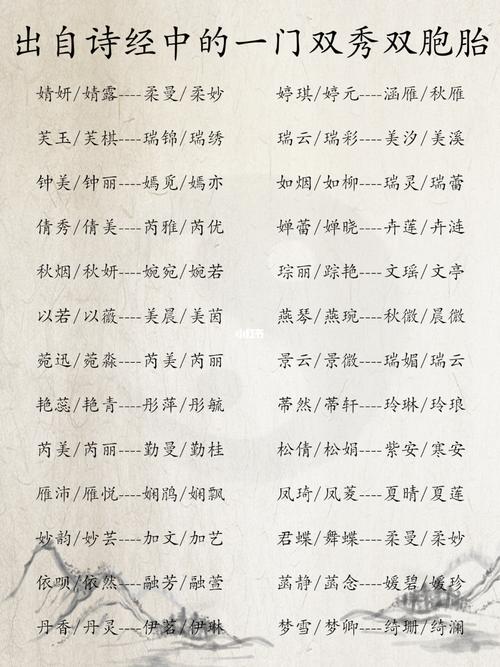 出自诗经中的一门双秀双胞胎
婧妍/婧露----柔曼/柔妙
婷琪/婷元----涵雁/秋雁
芙玉/芙棋----瑞锦/瑞绣
瑞云/瑞彩----美汐/美溪
钟美/钟丽----嫣觅/嫣亦
如烟/如柳----瑞灵/瑞蕾
倩秀/倩美----芮雅/芮优
婵蕾/婵晓----卉莲/卉涟
秋烟/秋妍----婉宛/婉若
琮丽/踪艳----文瑶/文亭
以若/以薇----美晨/美茵
燕琴/燕琬----秋微/晨微
小红书
菀迅/菀淼----芮美/芮丽
景云/景微----瑞媚/瑞云
艳蕊/艳青----彤萍/彤毓
蒂然/蒂轩----玲琳/玲琅
芮美/芮丽----勤曼/勤桂
松倩/松娟----紫安/寒安
雁沛/雁悦----娴鹃/娴飘
凤琦/凤菱----夏晴/夏莲
妙韵/妙芸----加文/加艺
君蝶/舞蝶----柔曼/柔妙
依呗/依然----融芳/融萱
菡静/菡念----媛碧/媛珍
丹香/丹灵----伊茗/伊琳
梦雪/梦卿----绮珊/绮澜